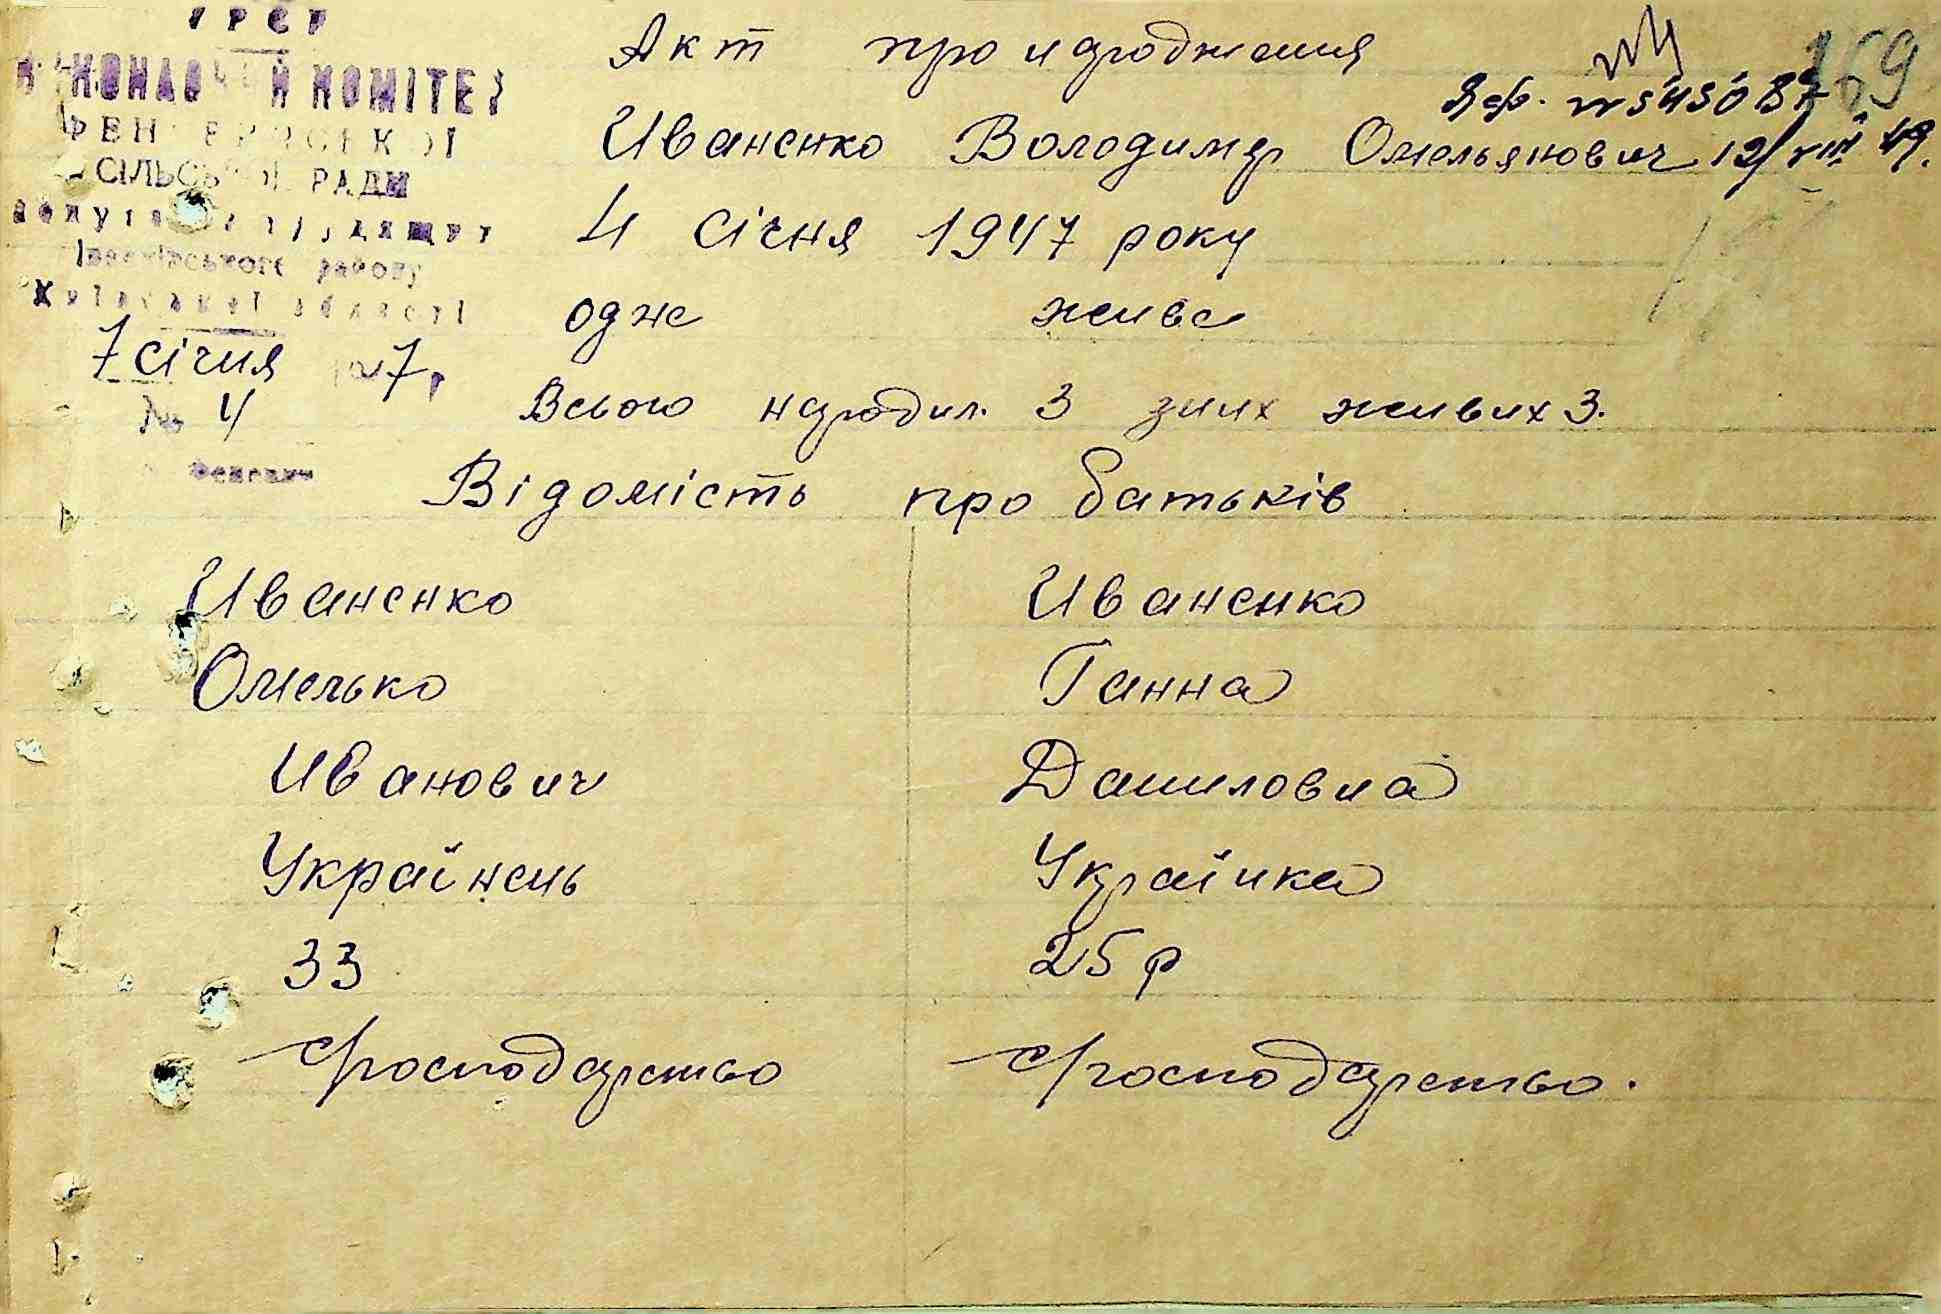 УРСР
ВИКОНАВЧИЙ КОМІТЕТ
СІЛЬСЬКОЇ РАДИ
депутатів трудящих
району
Київської області
7 січня 1947 р.
№ 4
169
Акт про народження
№ 545087
Иваненко Володимир Омельянович 12/VIII 49.
4 січня 1947 року
одне живе
Всього народил. 3 з них живих 3.
Відомість про батьків
Иваненко Иваненко
Омелько Ганна
Иванович Даниловна
Українець Українка
33 25 р
господарство господарство.